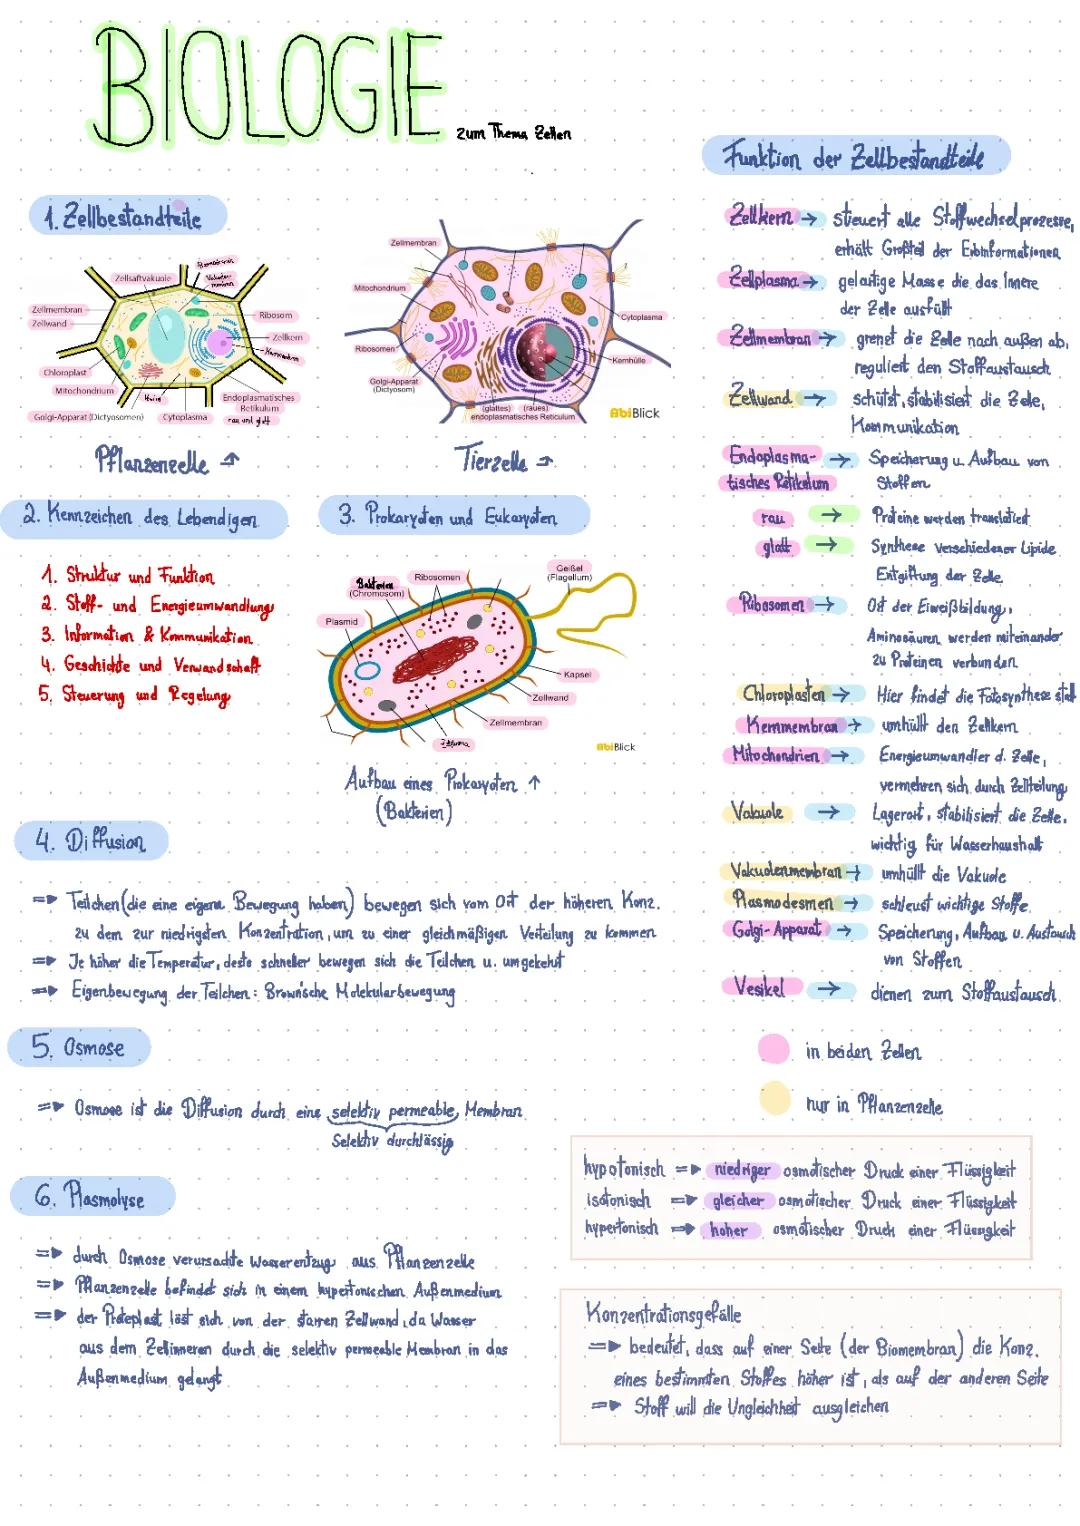 BIOLOGIE
zum Thema Zellen
1. Zellbestandteile
Zellsaftvakuole
Zellmembran
Zellwand
Ribosom
Zellkern
Kernmembran
Chloroplast
Mitochondrium
Golgi-Apparat (Dictyosomen)
Cytoplasma
Endoplasmatisches
Retikulum
rau und glatt
Pflanzenzelle
Zellmembran
Mitochondrium
Ribosomen
Golgi-Apparat
(Dictyosom)
Cytoplasma
Kernhülle
(glattes) (raues)
endoplasmatisches Reticulum
AbiBlick
Tierzelle
2. Kennzeichen des Lebendigen
1. Struktur und Funktion
2. Stoff- und Energieumwandlung
3. Information & Kommunikation
4. Geschichte und Verwandschaft
5. Steuerung und Regelung
3. Prokaryoten und Eukaryoten
Bakterien
(Chromosom)
Ribosomen
Geißel
(Flagellum)
Plasmid
Kapsel
Zellwand
Zellmembran
AbiBlick
Aufbau eines Prokaryoten ↑
(Bakterien)
4. Diffusion
=> Teilchen (die eine eigene Bewegung haben) bewegen sich vom Ort der höheren Konz.
zu dem zur niedrigsten Konzentration, um zu einer gleichmäßigen Verteilung zu kommen
=> Je höher die Temperatur, desto schneller bewegen sich die Teilchen u. umgekehrt
=> Eigenbewegung der Teilchen: Brown'sche Molekularbewegung
5. Osmose
=> Osmose ist die Diffusion durch eine selektiv permeable Membran
Selektiv durchlässig
6. Plasmolyse
=> durch Osmose verursachte Wasserentzug aus Pflanzenzelle
=> Pflanzenzelle befindet sich in einem hypertonischen Außenmedium
=> der Protoplast löst sich von der starren Zellwand, da Wasser
aus dem Zellinneren durch die selektiv permeable Membran in das
Außenmedium gelangt
Funktion der Zellbestandteile
Zellkern → steuert alle Stoffwechselprozesse,
erhält Großteil der Erbinformationen
Zellplasma → gelartige Masse die das Innere
der Zelle ausfüllt
Zellmembran → grenzt die Zelle nach außen ab,
reguliert den Stoffaustausch
Zellwand → schützt, stabilisiert die Zelle,
Kommunikation
Endoplasma- → Speicherung u. Aufbau von
tisches Retikulum Stoffen
rau → Proteine werden translatiert
glatt → Synthese verschiedener Lipide
Entgiftung der Zelle
Ribosomen → Ort der Eiweißbildung,
Aminosäuren werden miteinander
zu Proteinen verbunden
Chloroplasten → Hier findet die Fotosynthese statt
Kernmembran → umhüllt den Zellkern
Mitochondrien → Energieumwandler d. Zelle,
vermehren sich durch Zellteilung
Vakuole → Lagerort, stabilisiert die Zelle,
wichtig für Wasserhaushalt
Vakuolenmembran → umhüllt die Vakuole
Plasmodesmen → schleust wichtige Stoffe
Golgi-Apparat → Speicherung, Aufbau u. Austausch
von Stoffen
Vesikel → dienen zum Stoffaustausch
in beiden Zellen
nur in Pflanzenzelle
hypotonisch => niedriger osmotischer Druck einer Flüssigkeit
isotonisch => gleicher osmotischer Druck einer Flüssigkeit
hypertonisch => hoher osmotischer Druck einer Flüssigkeit
Konzentrationsgefälle
=> bedeutet, dass auf einer Seite (der Biomembran) die Konz.
eines bestimmten Stoffes höher ist, als auf der anderen Seite
=> Stoff will die Ungleichheit ausgleichen